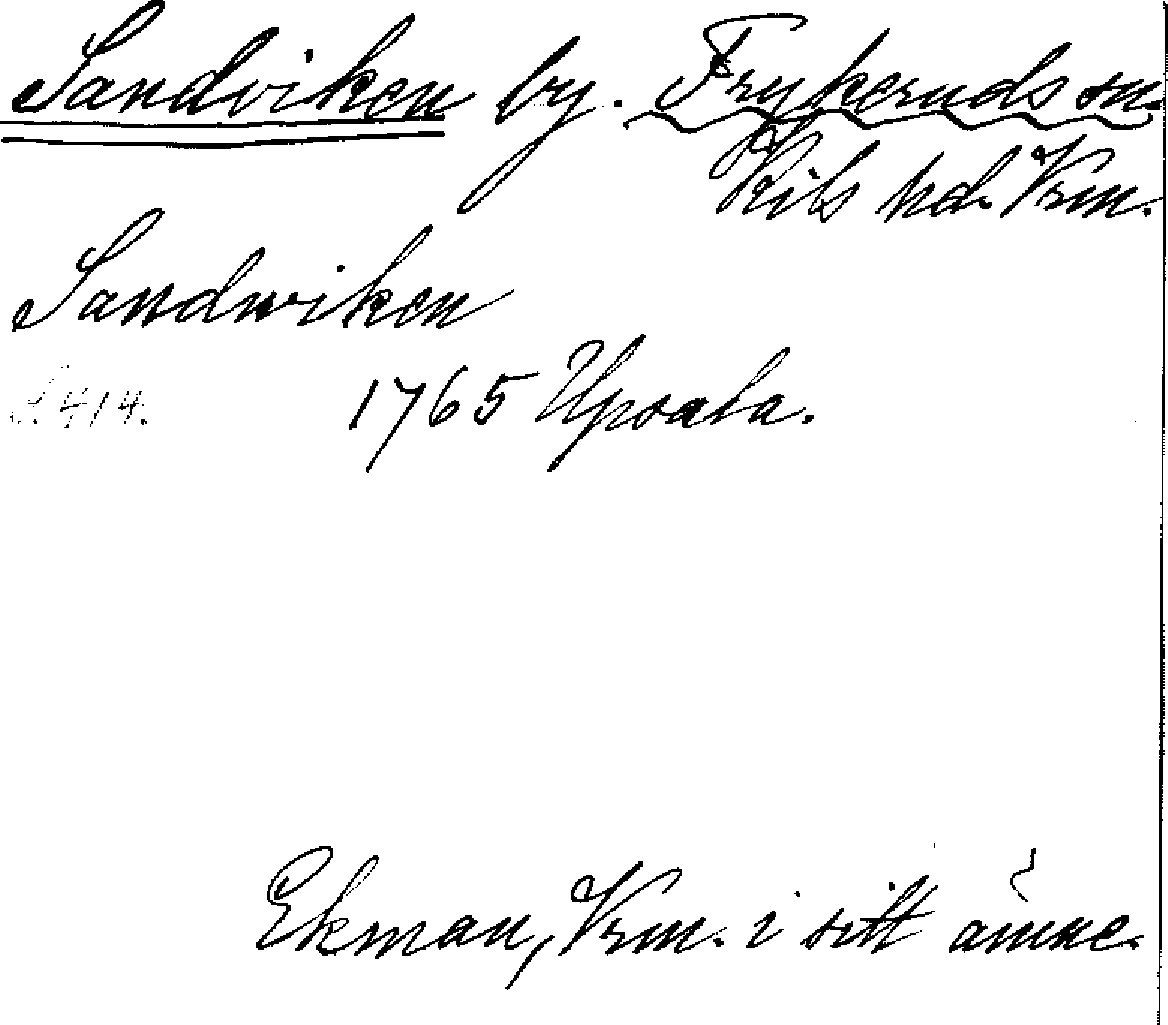 Sandviken by. Frykeruds sn.
Kils hd. Vrm.
Sandwiken
S. 414. 1765 Upsala.
Ekman, Vrm. i sitt ämne.